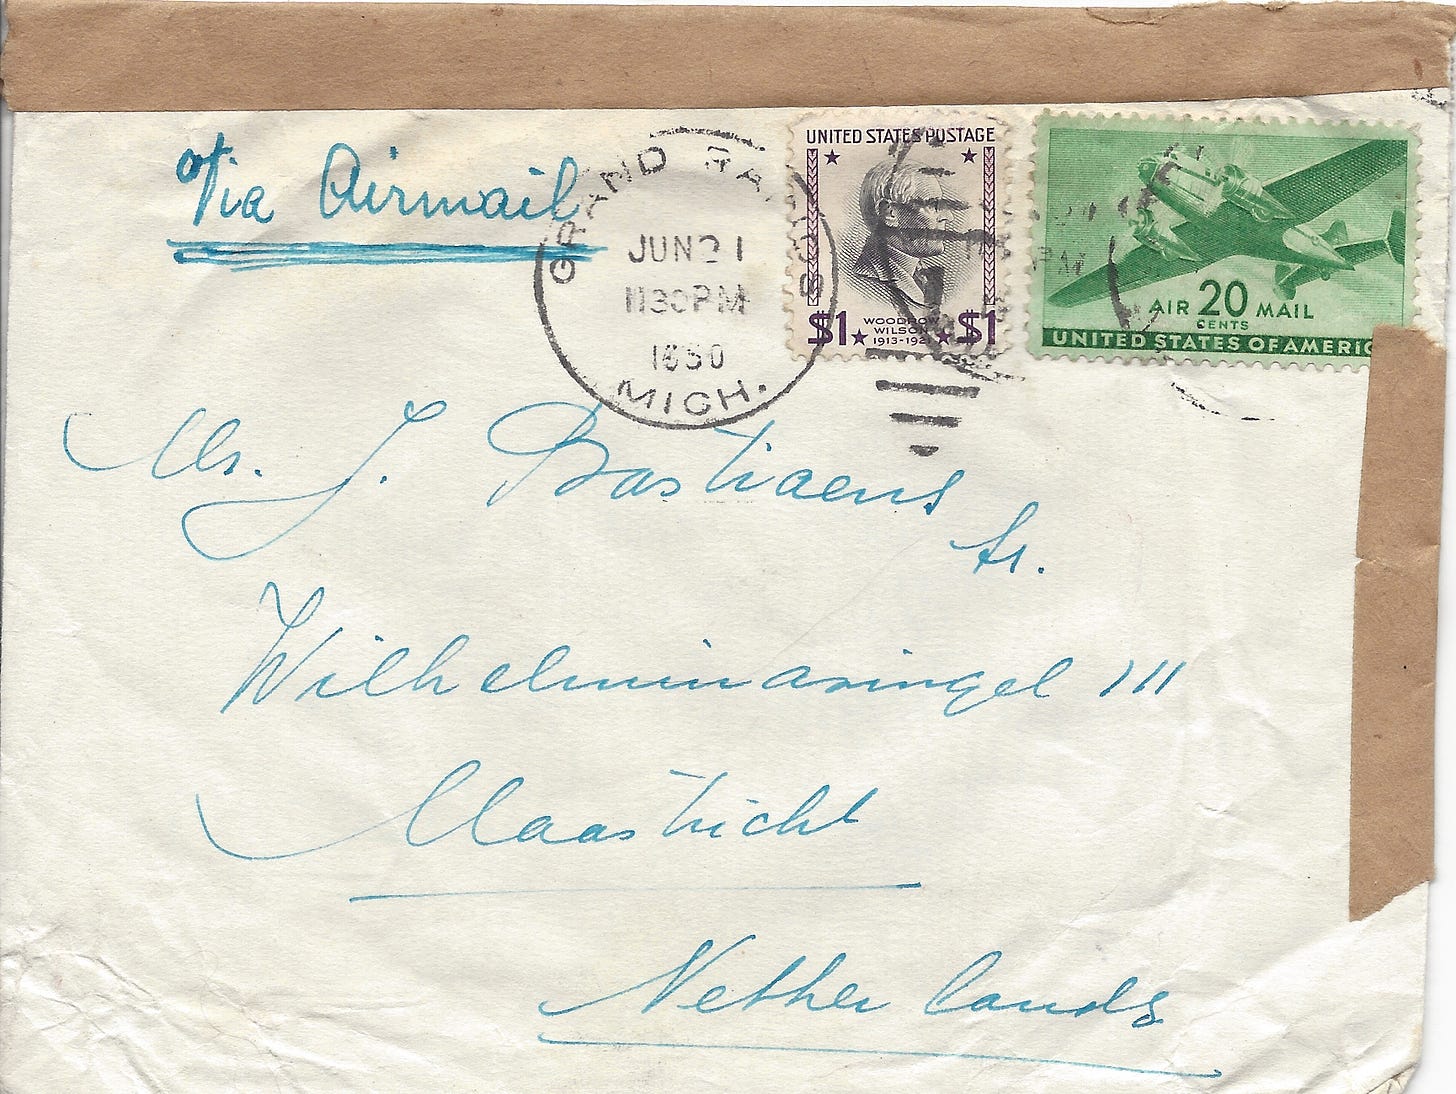 Via Airmail
GRAND RAPIDS
JUN 21
1130 PM
1950
MICH.
UNITED STATES POSTAGE
WOODROW
WILSON
$1 1913-1921 $1
AIR 20 MAIL
CENTS
UNITED STATES OF AMERIC
Mr. J. Bastiaens
Sr.
Wilhelminasingel 111
Maastricht
Netherlands